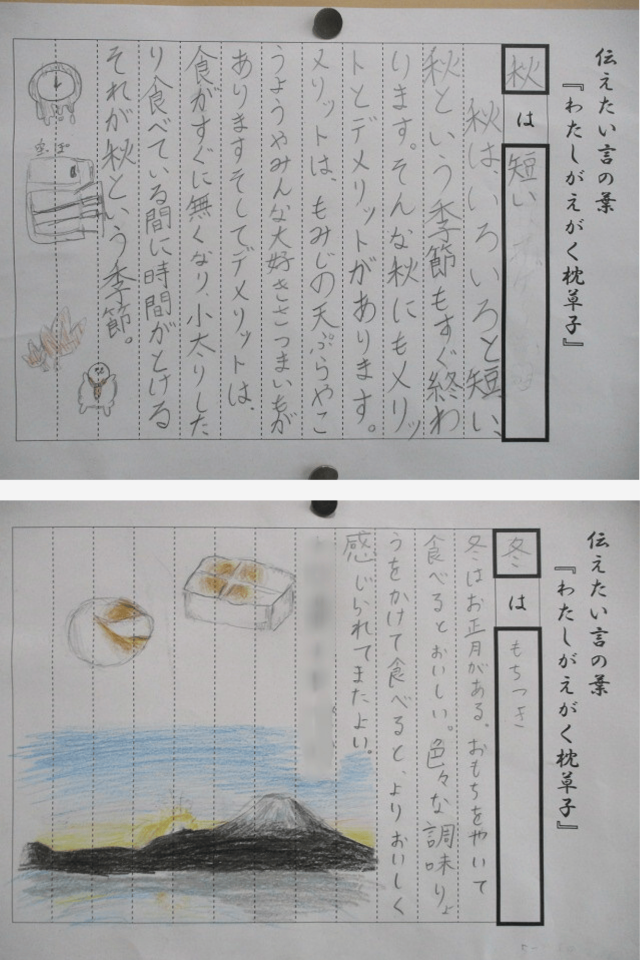 伝えたい言の葉
『わたしがえがく枕草子』
秋は短い
秋は、いろいろと短い、
秋という季節もすぐ終わ
ります。そんな秋にもメリッ
トとデメリットがあります。
メリットは、もみじの天ぷらやこ
うようやみんな大好きさつまいもが
ありますそしてデメリットは、
食がすぐに無くなり、小太りした
り食べている間に時間がとける
それが秋という季節。
伝えたい言の葉
『わたしがえがく枕草子』
冬はもちつき
冬はお正月がある、おもちをやいて
食べるとおいしい。色々な調味りょ
うをかけて食べると、よりおいしく
感じられてまたよい。